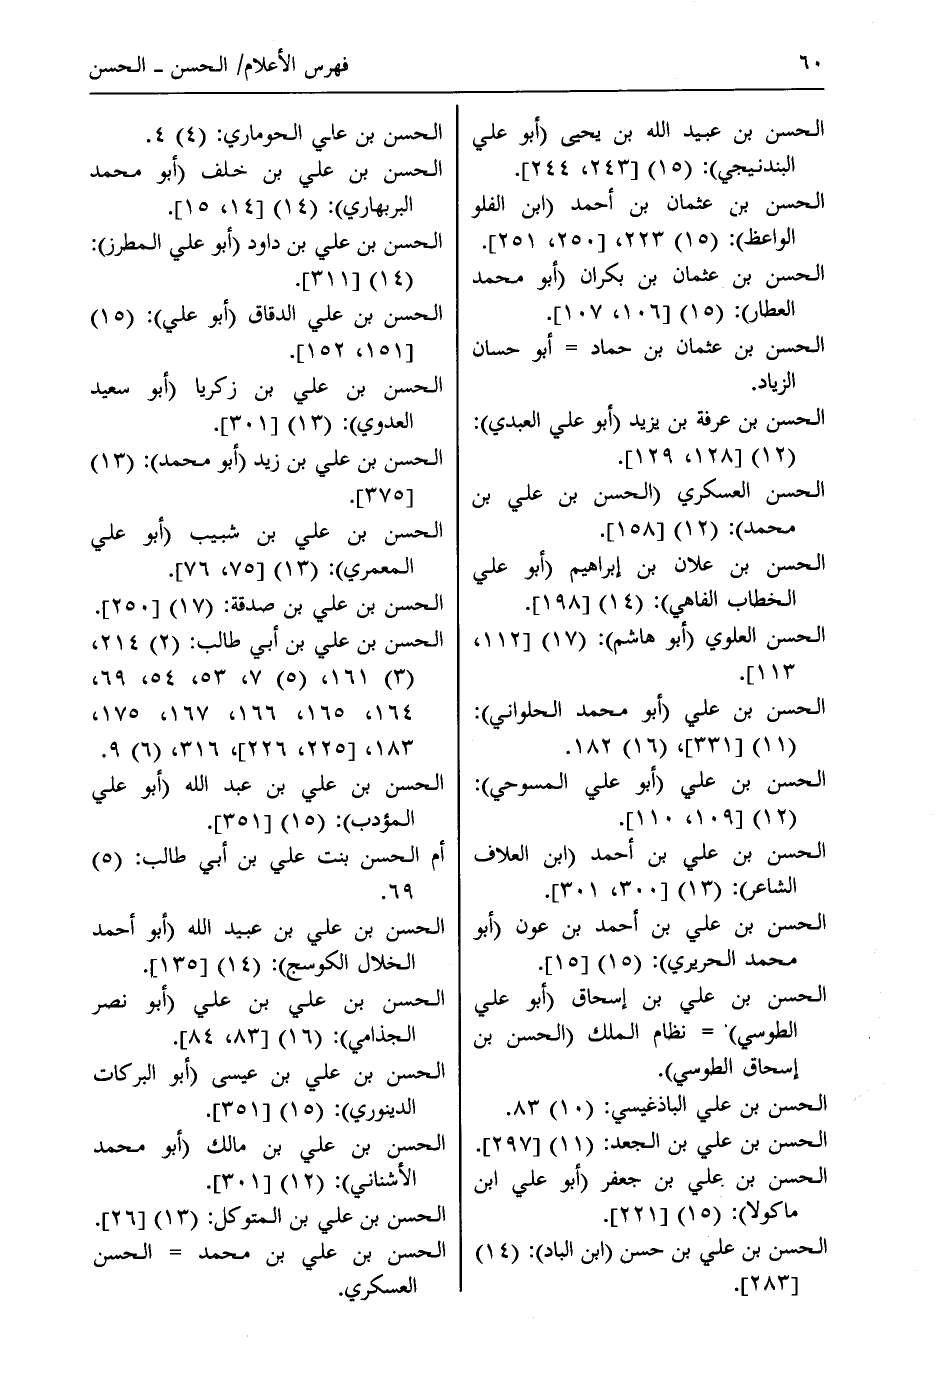 ٦٠
فهرس الأعلام/ الحسن ـ الحسن
الحسن بن عبيد الله بن يحيى (أبو علي
البندنيجي): (١٥) [٢٤٣، ٢٤٤].
الحسن بن عثمان بن أحمد (ابن الفلو
الواعظ): (١٥) ٢٢٣، [٢٥٠، ٢٥١].
الحسن بن عثمان بن بكران (أبو محمد
العطار): (١٥) [١٠٦، ١٠٧].
الحسن بن عثمان بن حماد = أبو حسان
الزياد.
الحسن بن عرفة بن يزيد (أبو علي العبدي):
(١٢) [١٢٨، ١٢٩].
الحسن العسكري (الحسن بن علي بن
محمد): (١٢) [١٥٨].
الحسن بن علان بن إبراهيم (أبو علي
الخطاب الفاهي): (١٤) [١٩٨].
الحسن العلوي (أبو هاشم): (١٧) [١١٢،
١١٣].
الحسن بن علي (أبو محمد الحلواني):
(١١) [٣٣١]، (١٦) ١٨٢.
الحسن بن علي (أبو علي المسوحي):
(١٢) [١٠٩، ١١٠].
الحسن بن علي بن أحمد (ابن العلاف
الشاعر): (١٣) [٣٠٠، ٣٠١].
الحسن بن علي بن أحمد بن عون (أبو
محمد الحريري): (١٥) [١٥].
الحسن بن علي بن إسحاق (أبو علي
الطوسي) = نظام الملك (الحسن بن
إسحاق الطوسي).
الحسن بن علي الباذغيسي: (١٠) ٨٣.
الحسن بن علي بن الجعد: (١١) [٢٩٧].
الحسن بن علي بن جعفر (أبو علي ابن
ماكولا): (١٥) [٢٢١].
الحسن بن علي بن حسن (ابن الباد): (١٤)
[٢٨٣].
الحسن بن علي الحوماري: (٤) ٤.
الحسن بن علي بن خلف (أبو محمد
البربهاري): (١٤) [١٤، ١٥].
الحسن بن علي بن داود (أبو علي المطرز):
(١٤) [٣١١].
الحسن بن علي الدقاق (أبو علي): (١٥)
[١٥١، ١٥٢].
الحسن بن علي بن زكريا (أبو سعيد
العدوي): (١٣) [٣٠١].
الحسن بن علي بن زيد (أبو محمد): (١٣)
[٣٧٥].
الحسن بن علي بن شبيب (أبو علي
المعمري): (١٣) [٧٥، ٧٦].
الحسن بن علي بن صدقة: (١٧) [٢٥٠].
الحسن بن علي بن أبي طالب: (٢) ٢١٤،
(٣) ١٦١، (٥) ٧، ٥٣، ٥٤، ٦٩،
١٦٤، ١٦٥، ١٦٦، ١٦٧، ١٧٥،
١٨٣، [٢٢٥، ٢٢٦]، ٣١٦، (٦) ٩.
الحسن بن علي بن عبد الله (أبو علي
المؤدب): (١٥) [٣٥١].
أم الحسن بنت علي بن أبي طالب: (٥)
٦٩.
الحسن بن علي بن عبيد الله (أبو أحمد
الخلال الكوسج): (١٤) [١٣٥].
الحسن بن علي بن علي (أبو نصر
الجذامي): (١٦) [٨٣، ٨٤].
الحسن بن علي بن عيسى (أبو البركات
الدينوري): (١٥) [٣٥١].
الحسن بن علي بن مالك (أبو محمد
الأشناني): (١٢) [٣٠١].
الحسن بن علي بن المتوكل: (١٣) [٢٦].
الحسن بن علي بن محمد = الحسن
العسكري.